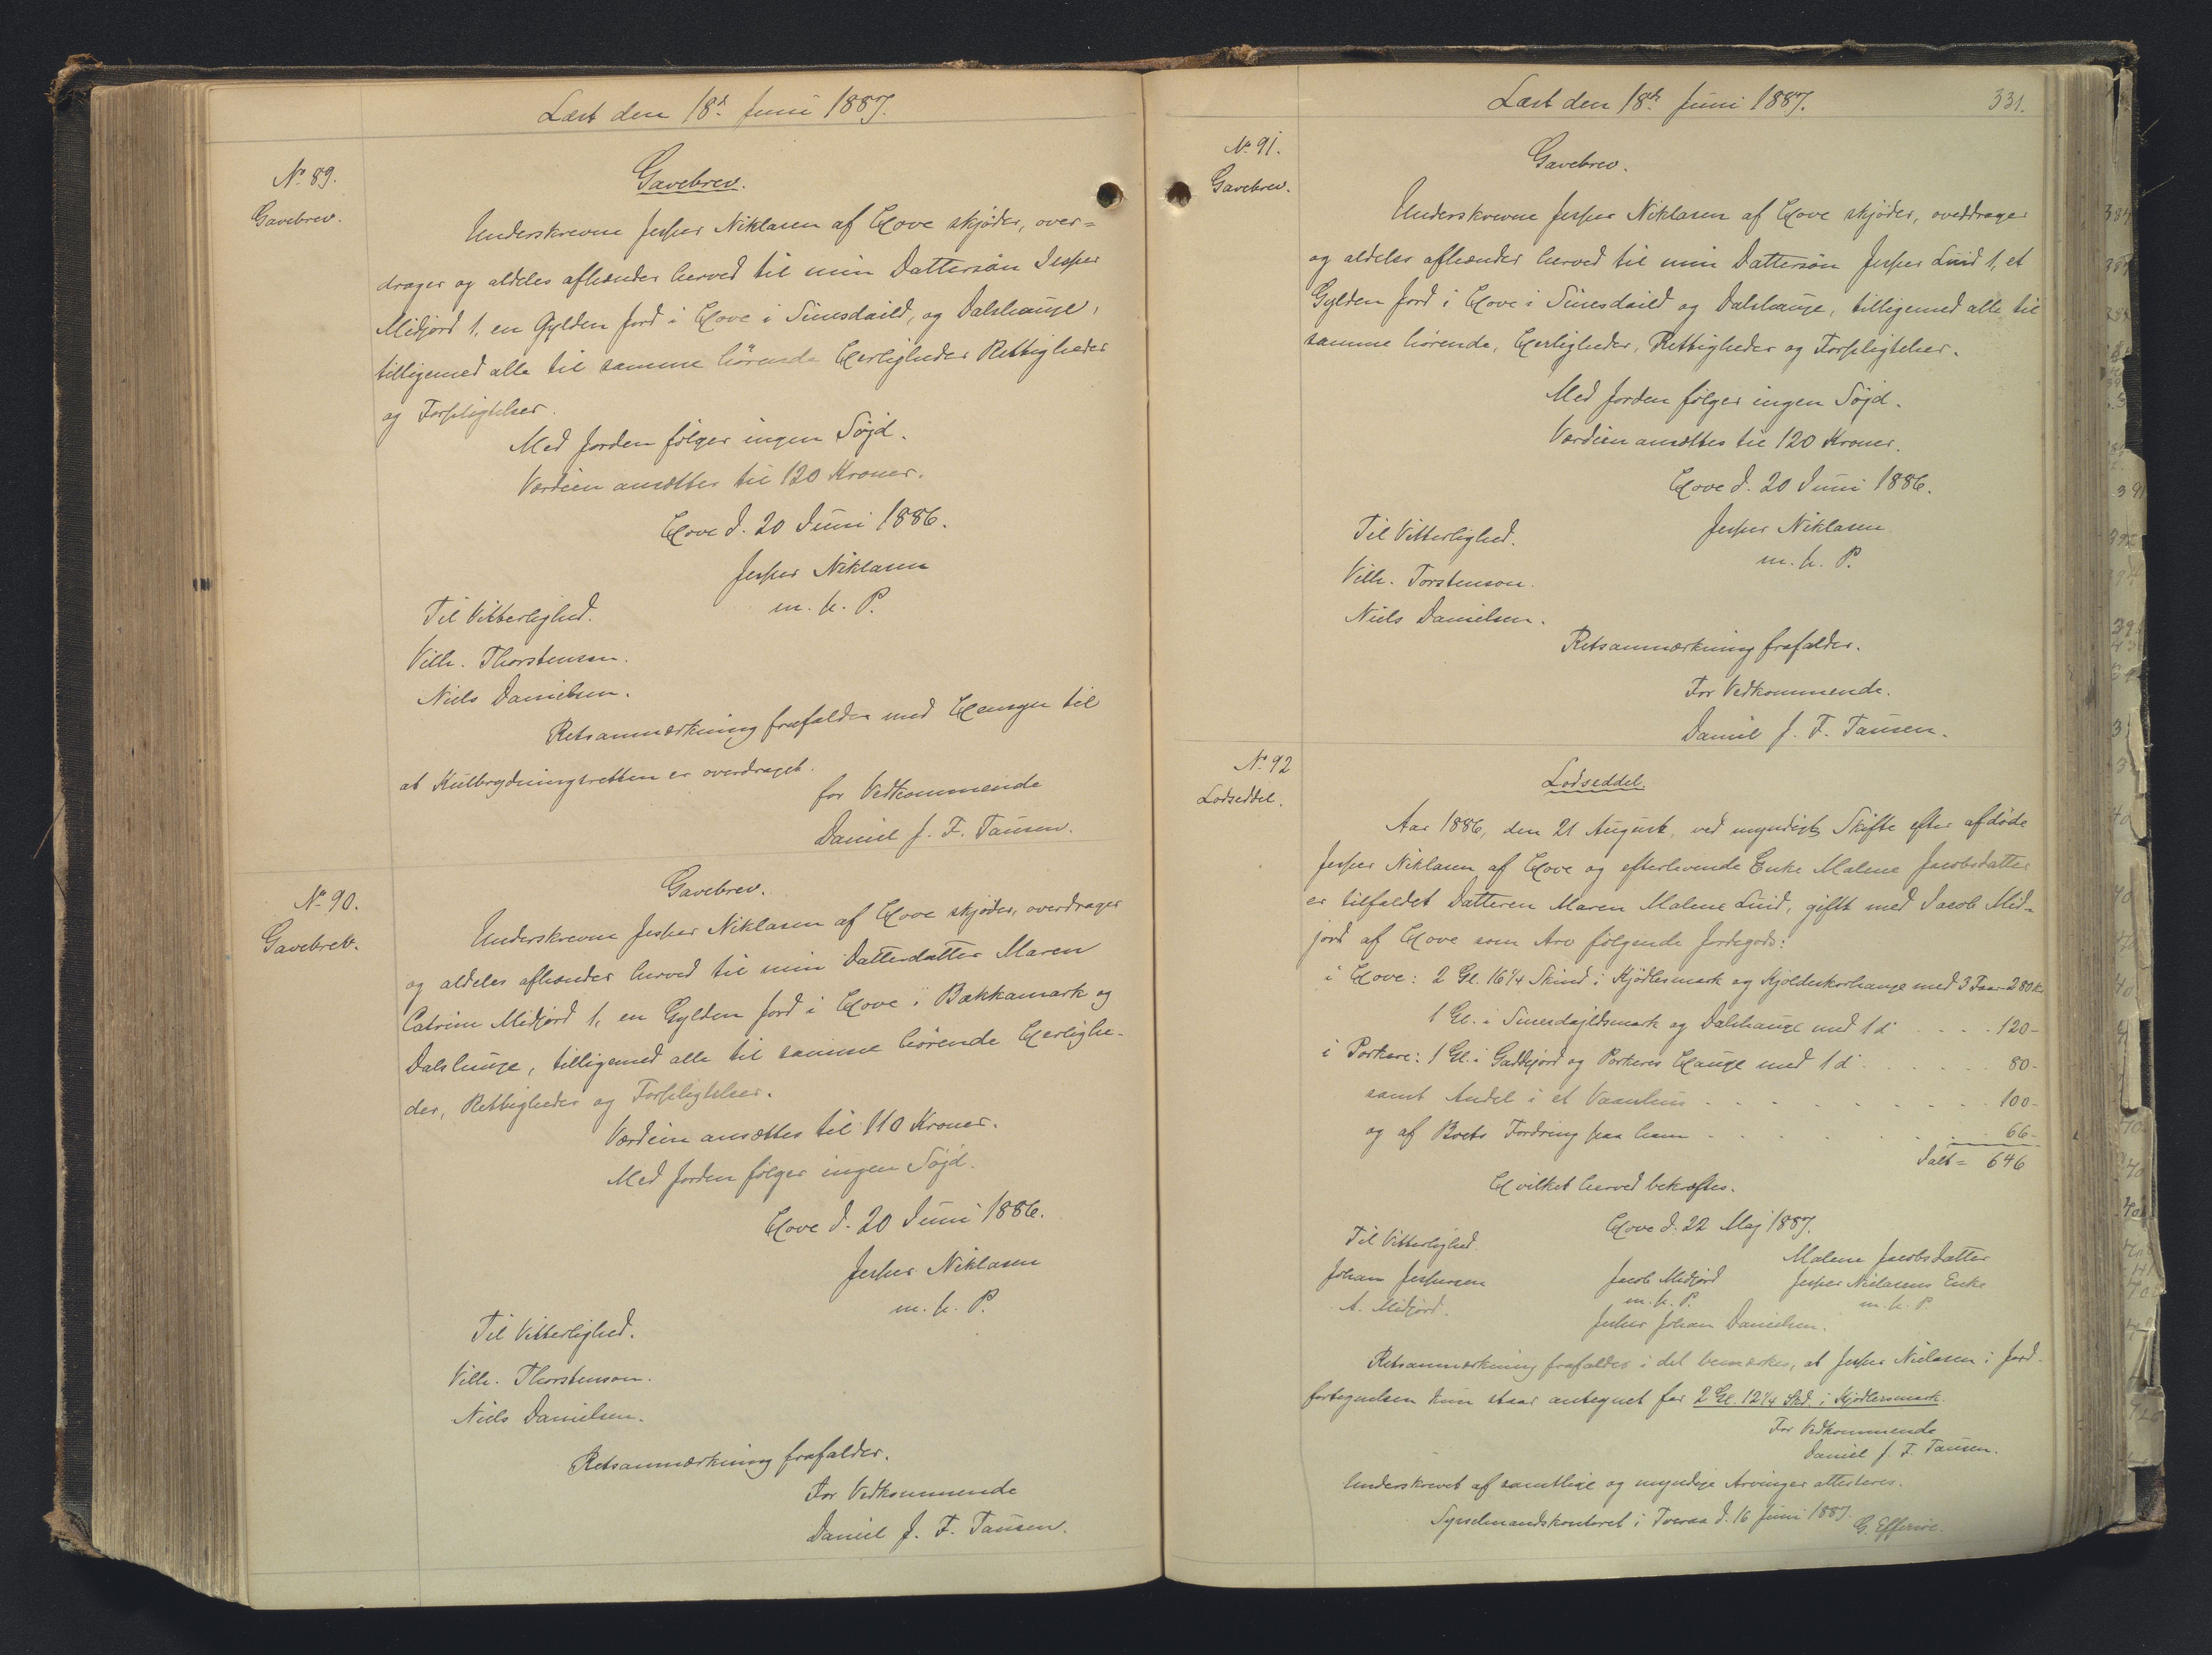 Læst den 18d Juni 1887.
No 89.
Gavebrev.
Gavebrev.
Underskrevne Jesper Niklasen af Hove skjöder, over=
drager og aldeles afhænder herved til min Dattersön Jesper
Midjord 1, en Gylden Jord i Hove i Simesdaild, og Dalshauge,
tilligemed alle til samme hörende Herligheder Rettigheder
og Forpligtelser.
Med Jorden fölger ingen Söjd.
Værdien ansættes til 120 Kroner.
Hove d. 20 Juni 1886.
Jesper Niklasen
m. h. P.
Til Vitterlighed.
Vilh. Thorstensen.
Niels Danielsen.
Retsanmærkning frafaldes med Hensyn til
at Kulbrydningsretten er overdraget.
for Vedkommende
Daniel J. F. Tausen.
No 90.
Gavebrev.
Gavebrev.
Underskrevne Jesper Niklasen af Hove skjöder, overdrager
og aldeles afhænder herved til min Datterdatter Maren
Catrine Midjord 1, en Gylden Jord i Hove i Bækkamark og
Dalshauge, tilligemed alle til samme hörende Herlighe-
der, Rettigheder og Forpligtelser.
Værdien ansættes til 110 Kroner.
Med Jorden fölger ingen Söjd.
Hove d. 20 Juni 1886.
Jesper Niklasen
m. h. P.
Til Vitterlighed.
Vilh. Thorstenson.
Niels Danielsen.
Retsanmærkning frafaldes.
For Vedkommende
Daniel J. F. Tausen.
Læst den 18de Juni 1887.
331.
No 91.
Gavebrev.
Gavebrev.
Underskrevne Jesper Niklasen af Hove skjöder, overdrager
og aldeles afhænder herved til min Dattersön Jesper Luid 1, et
Gylden Jord i Hove i Simesdaild og Dalshauge, tilligemed alle til
samme hörende, Herligheder, Rettigheder og Forpligtelser.
Med Jorden fölger ingen Söjd.
Værdien ansættes til 120 Kroner.
Hove d. 20 Juni 1886.
Jesper Niklasen
m. h. P.
Til Vitterlighed.
Vilh. Torstenson.
Niels Danielsen.
Retsanmærkning frafaldes.
For Vedkommende.
Daniel J. F. Tausen.
No 92
Lodseddel.
Lodseddel.
Aar 1886, den 21 August, ved myndigt Skifte efter afdöde
Jesper Niklasen af Hove og efterlevende Enke Malene Jacobsdatter
er tilfaldet Datteren Maren Malene Luid, gift med Jacob Mid-
jord af Hove som Arv fölgende Jordegods:
i Hove: 2 Gl. 16 1/4 Skind i Kjödlesmark og Kjoldeskorhauge med 3 Faar - 280 Kr
1 Gl. i Simesdajldsmark og Dalshauge med 1 d° . . . . 120 -
i Porkere: 1 Gl. i Gaddejord og Porkeres Hauge med 1 d° . . . . . 80 -
samt Andel i et Vaanhus . . . . . . . . 100 -
og af Boets Fordring paa ham . . . . . . . 66 -
Ialt = 646
Hvilket herved bekræftes.
Hove d. 22 Maj 1887.
Til Vitterlighed.
Malene Jacobsdatter
Johan Jespersen
Jacob Midjord
Jesper Nielasens Enke
A. Midjord.
m. h. P.
m. h. P.
Jesper Johan Danielsen.
Retsanmærkning frafaldes i det bemærkes, at Jesper Nielasen i Jord-
fortegnelsen kun staar antegnet for 2 Gl. 12 1/4 Skd. i Kjödlersmark.
For Vedkommende
Daniel J. F. Tausen.
Underskrevet af samtlige og myndige Arvinger attesteres.
Sysselmandskontoret i Tveraa d. 16 Juni 1887.
G. Effersöe.